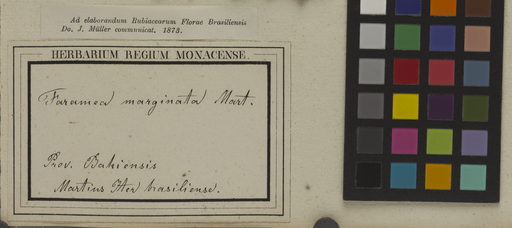 Ad elaborandum Rubiacearum Florae Brasiliensis
Do. J. Müller communicat. 1873.
HERBARIUM REGIUM MONACENSE.
Faramea marginata Mart.
Prov. Bahiensis
Martius Iter brasiliense.